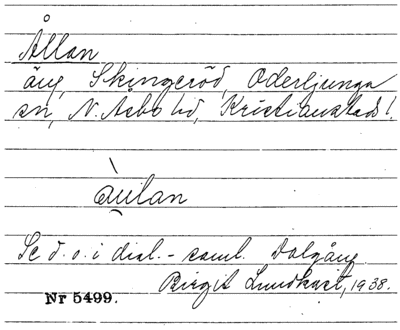 Ållan
äng, Skingeröd, Oderljunga
sn, N. Åsbo hd, Kristianstads l.
àulan
Se d. o. i dial.-saml. Dalgång
Birgit Lundkvist, 1938.
Nr 5499.